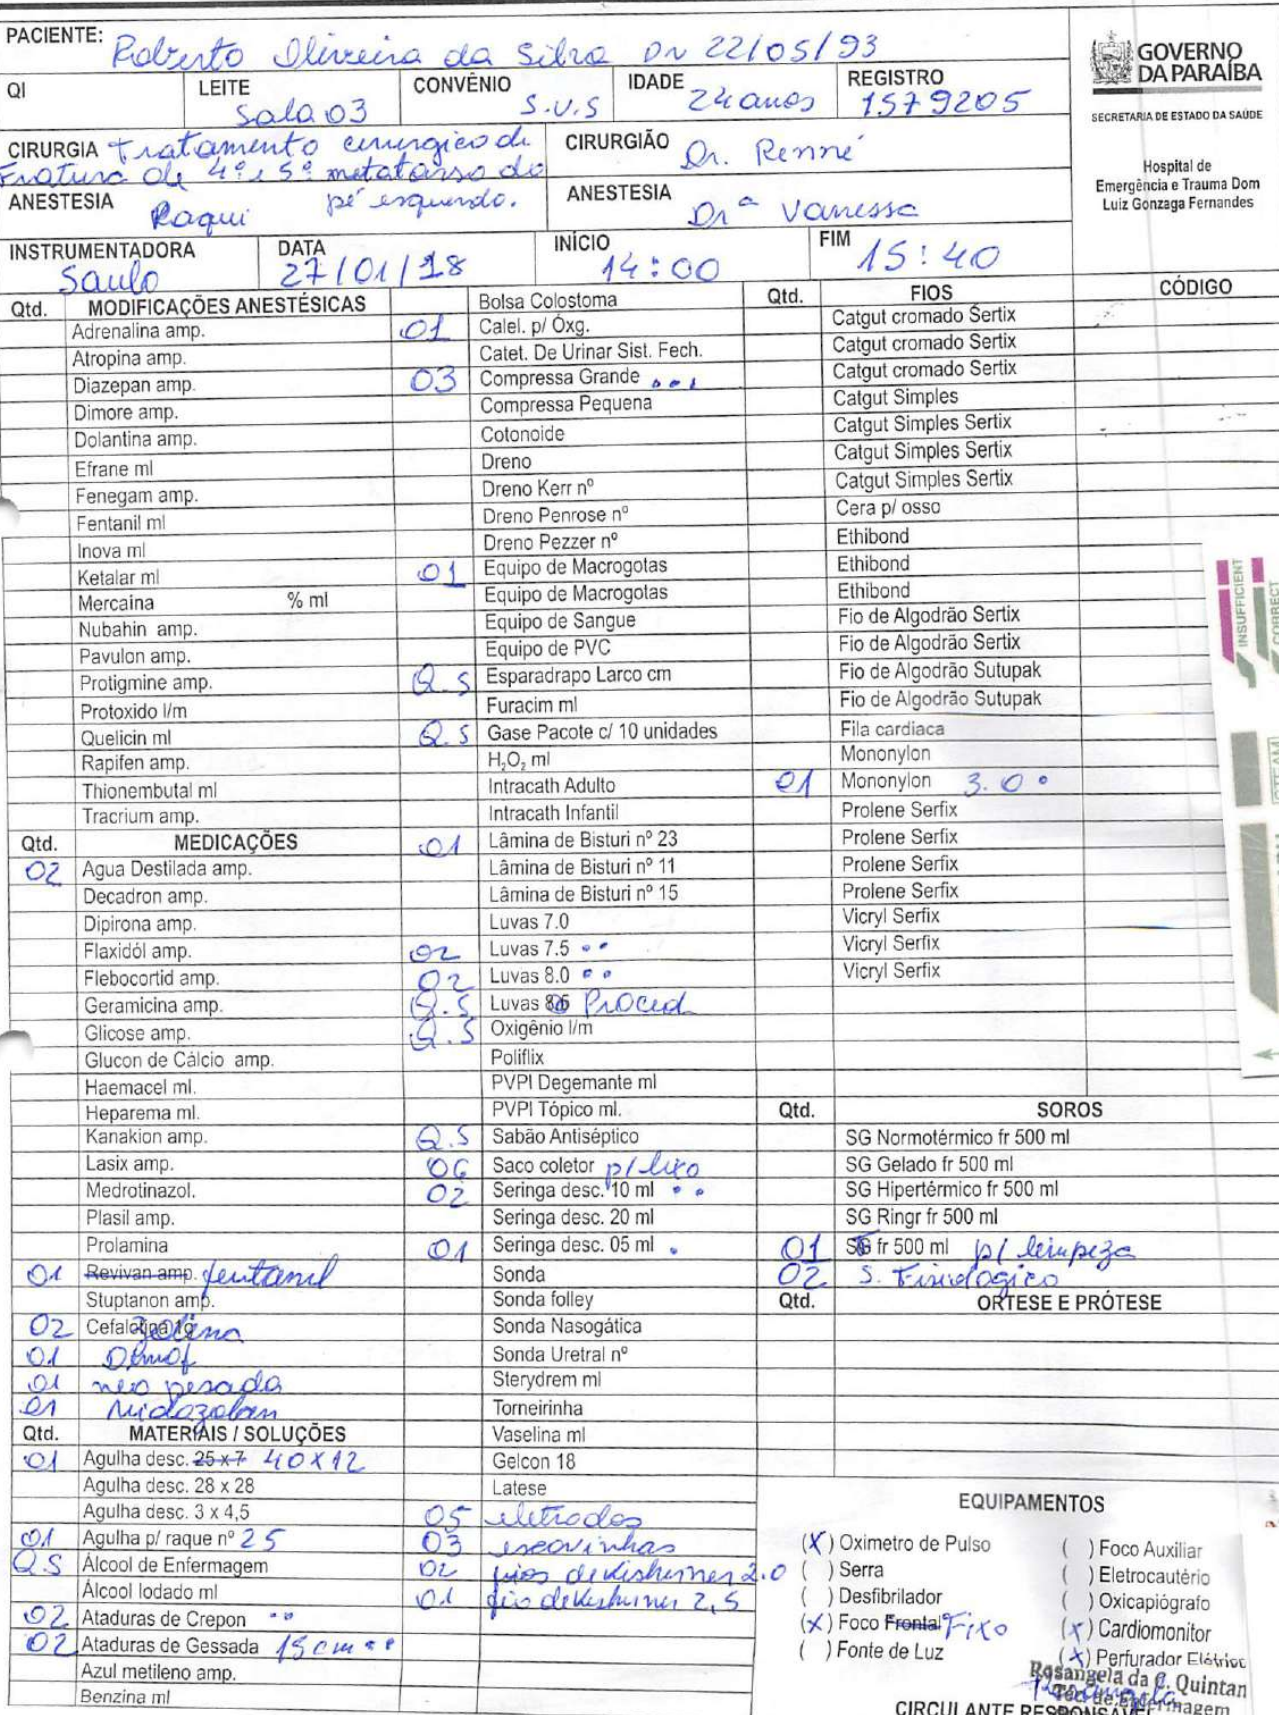 PACIENTE: Roberto Oliveira da Silva DN 22/05/93
GOVERNO DA PARAÍBA
SECRETARIA DE ESTADO DA SAÚDE
Hospital de
Emergência e Trauma Dom
Luiz Gonzaga Fernandes
QI LEITE Sala 03 CONVÊNIO S.U.S IDADE 24 anos REGISTRO 1579205
CIRURGIA Tratamento cirurgico de
Fratura de 4º e 5º metatarso do
pé esquerdo.
CIRURGIÃO Dr. Renné
ANESTESIA Raqui ANESTESIA Drª Vanessa
INSTRUMENTADORA Saulo DATA 27/01/18 INÍCIO 14:00 FIM 15:40
Qtd. MODIFICAÇÕES ANESTÉSICAS
Adrenalina amp.
Atropina amp.
Diazepan amp.
Dimore amp.
Dolantina amp.
Efrane ml
Fenegam amp.
Fentanil ml
Inova ml
Ketalar ml
Mercaina % ml
Nubahin amp.
Pavulon amp.
Protigmine amp.
Protoxido l/m
Quelicin ml
Rapifen amp.
Thionembutal ml
Tracrium amp.
Qtd. MEDICAÇÕES
02 Agua Destilada amp.
Decadron amp.
Dipirona amp.
Flaxidól amp.
Flebocortid amp.
Geramicina amp.
Glicose amp.
Glucon de Cálcio amp.
Haemacel ml.
Heparema ml.
Kanakion amp.
Lasix amp.
Medrotinazol.
Plasil amp.
Prolamina
01 Revivan amp. fentanil
Stuptanon amp.
02 Cefalotina 1g zolina
01 Dimof
01 neo pesada
01 Midazolan
Qtd. MATERIAIS / SOLUÇÕES
01 Agulha desc. 25 x 7 40x12
Agulha desc. 28 x 28
Agulha desc. 3 x 4,5
01 Agulha p/ raque nº 25
Q.S Álcool de Enfermagem
Álcool Iodado ml
02 Ataduras de Crepon
02 Ataduras de Gessada 15 cm
Azul metileno amp.
Benzina ml
Bolsa Colostoma
01 Calel. p/ Óxg.
Catet. De Urinar Sist. Fech.
03 Compressa Grande
Compressa Pequena
Cotonoide
Dreno
Dreno Kerr nº
Dreno Penrose nº
Dreno Pezzer nº
01 Equipo de Macrogotas
Equipo de Macrogotas
Equipo de Sangue
Equipo de PVC
Q.S Esparadrapo Larco cm
Furacim ml
Q.S Gase Pacote c/ 10 unidades
H₂O₂ ml
Intracath Adulto
Intracath Infantil
01 Lâmina de Bisturi nº 23
Lâmina de Bisturi nº 11
Lâmina de Bisturi nº 15
Luvas 7.0
02 Luvas 7.5
02 Luvas 8.0
Q.S Luvas 8.5 Proced
Q.S Oxigênio l/m
Poliflix
PVPI Degemante ml
PVPI Tópico ml.
Q.S Sabão Antiséptico
06 Saco coletor p/ lixo
02 Seringa desc. 10 ml
Seringa desc. 20 ml
01 Seringa desc. 05 ml
Sonda
Sonda folley
Sonda Nasogática
Sonda Uretral nº
Sterydrem ml
Torneirinha
Vaselina ml
Gelcon 18
Latese
05 eletrodos
03 escovinhas
02 fios de Kishurner 2.0
01 fio de Kishurner 2,5
Qtd. FIOS CÓDIGO
Catgut cromado Sertix
Catgut cromado Sertix
Catgut cromado Sertix
Catgut Simples
Catgut Simples Sertix
Catgut Simples Sertix
Catgut Simples Sertix
Cera p/ osso
Ethibond
Ethibond
Ethibond
Fio de Algodrão Sertix
Fio de Algodrão Sertix
Fio de Algodrão Sutupak
Fio de Algodrão Sutupak
Fila cardiaca
Mononylon
01 Mononylon 3.0
Prolene Serfix
Prolene Serfix
Prolene Serfix
Prolene Serfix
Vicryl Serfix
Vicryl Serfix
Vicryl Serfix
Qtd. SOROS
SG Normotérmico fr 500 ml
SG Gelado fr 500 ml
SG Hipertérmico fr 500 ml
SG Ringr fr 500 ml
01 SG fr 500 ml p/ limpeza
02 S. Fisiologico
Qtd. ORTESE E PRÓTESE
EQUIPAMENTOS
(X) Oximetro de Pulso
( ) Serra
( ) Desfibrilador
(X) Foco Frontal Fixo
( ) Fonte de Luz
( ) Foco Auxiliar
( ) Eletrocautério
( ) Oxicapiógrafo
(X) Cardiomonitor
(X) Perfurador Elétrico
Rosangela da C. Quintan
Téc. de Enfermagem
CIRCULANTE RESPONSÁVEL
INSUFFICIENT
CORRECT